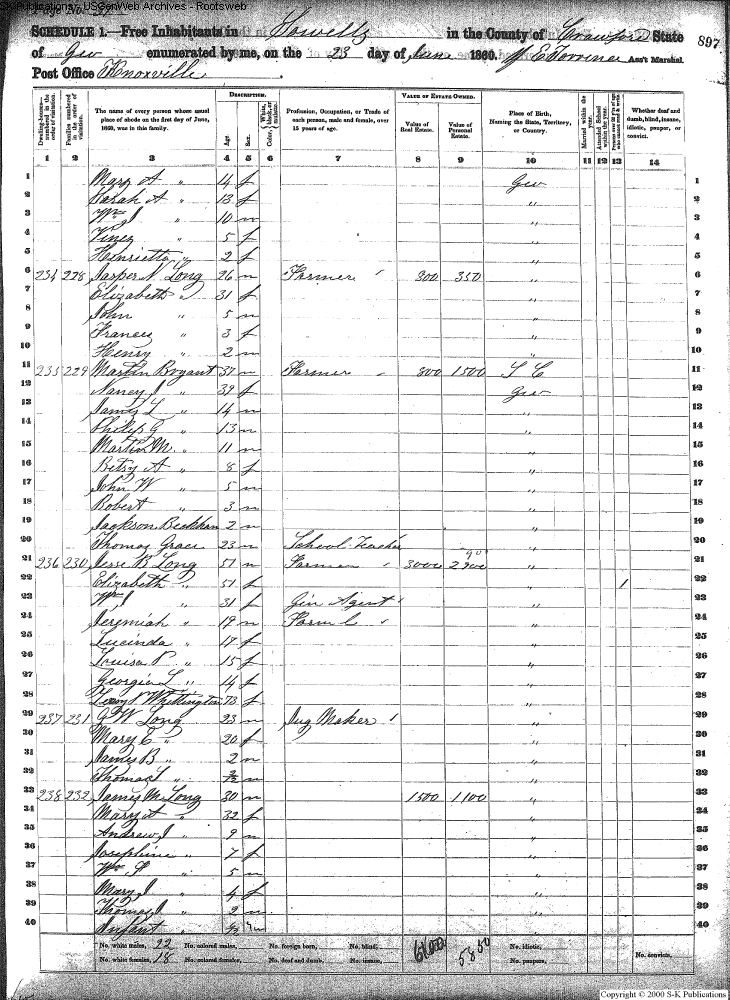 Census Publications - USGenWeb Archives - Rootsweb
Page No. 31
SCHEDULE 1.—Free Inhabitants in Sowells in the County of Crawford State
of Geo enumerated by me, on the 23 day of June 1860. Ass't Marshal. 897
Post Office Knoxville
DESCRIPTION. VALUE OF ESTATE OWNED.
Dwelling-houses—numbered in the order of visitation.
Families numbered in the order of visitation.
The name of every person whose usual place of abode on the first day of June, 1860, was in this family.
Age. Sex. Color, White, black, or mulatto.
Profession, Occupation, or Trade of each person, male and female, over 15 years of age.
Value of Real Estate. Value of Personal Estate.
Place of Birth, Naming the State, Territory, or Country.
Married within the year. Attended School within the year.
Whether deaf and dumb, blind, insane, idiotic, pauper, or convict.
1 2 3 4 5 6 7 8 9 10 11 12 13 14
1 Mary A " 14 f Geo 1
2 Sarah A " 13 f " 2
3 Wm J " 10 m " 3
4 Viney " 5 f " 4
5 Henrietta " 2 f " 5
6 234 228 Jasper N Long 26 m Farmer 300 350 " 6
7 Elizabeth " 31 f " 7
8 John " 5 m " 8
9 Frances " 3 f " 9
10 Henry " 2 m " 10
11 235 229 Martin Bryant 37 m Farmer 800 1500 S C 11
12 Nancy J " 39 f Geo 12
13 James L " 14 m " 13
14 Philip G " 13 m " 14
15 Martin M. " 11 m " 15
16 Betsy A " 8 f " 16
17 John W " 5 m " 17
18 Robert " 3 m " 18
19 Jackson Beckham 2 m " 19
20 Thomas Grace 23 m School Teacher " 20
21 236 230 Jesse B Long 51 m Farmer 3000 2900 " 21
22 Elizabeth " 51 f " 1 22
23 Wm J " 31 f Gin Agent " 23
24 Jeremiah " 19 m Farm L " 24
25 Lucinda " 17 f " 25
26 Louisa P " 15 f " 26
27 Georgia L " 14 f " 27
28 Whittington 73 f " 28
29 237 231 G W Long 23 m Jug Maker " 29
30 Mary E " 20 f " 30
31 James B " 2 m " 31
32 Thomas L " m " 32
33 238 232 James M Long 30 m 1500 1100 " 33
34 Mary A " 32 f " 34
35 Andrew J " 9 m " 35
36 Josephine " 7 f " 36
37 Wm S " 5 m " 37
38 Mary J " 4 f " 38
39 Thomas J " 2 m " 39
40 Infant " m " 40
No. white males, 22 No. colored males, No. foreign born, No. blind, 6100 5850 No. idiotic,
No. white females, 18 No. colored females, No. deaf and dumb, No. insane, No. paupers, No. convicts,
Copyright © 2000 S-K Publications